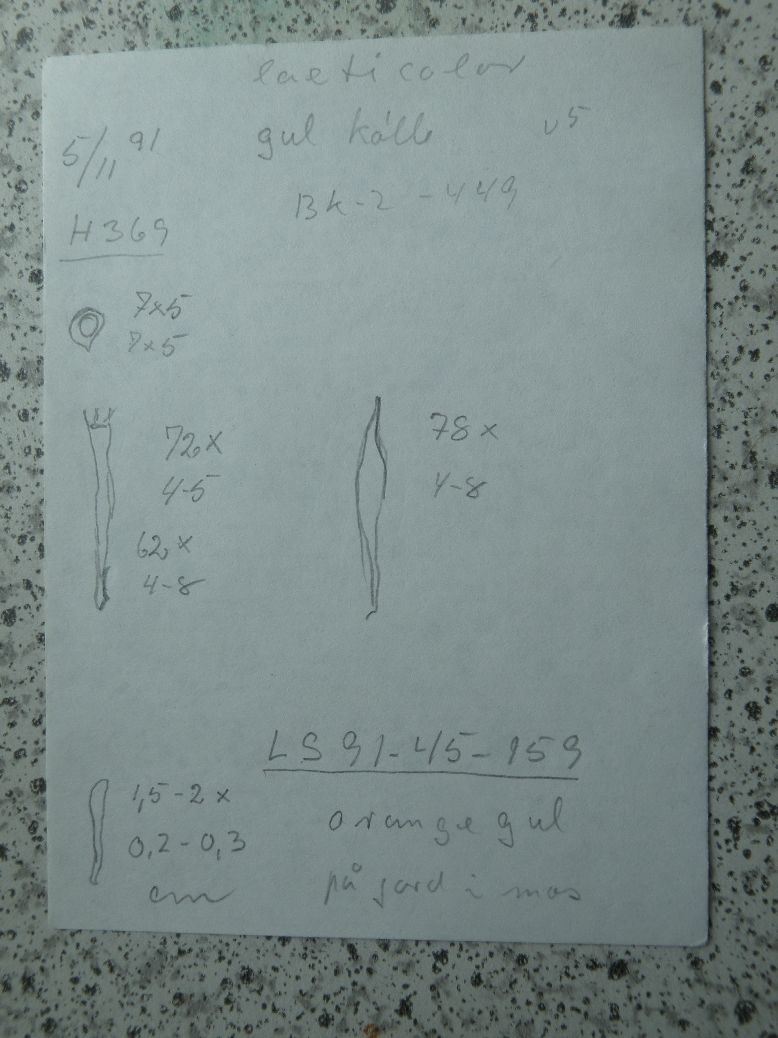 laeticolor
5/11 91 gul kölle v5
Bk-2 - 449
H 369
7x5
7x5
72x
4-5
62x
4-8
78x
4-8
LS 91-45-159
1,5-2 x
0,2-0,3
cm
orange gul
på jord i mos